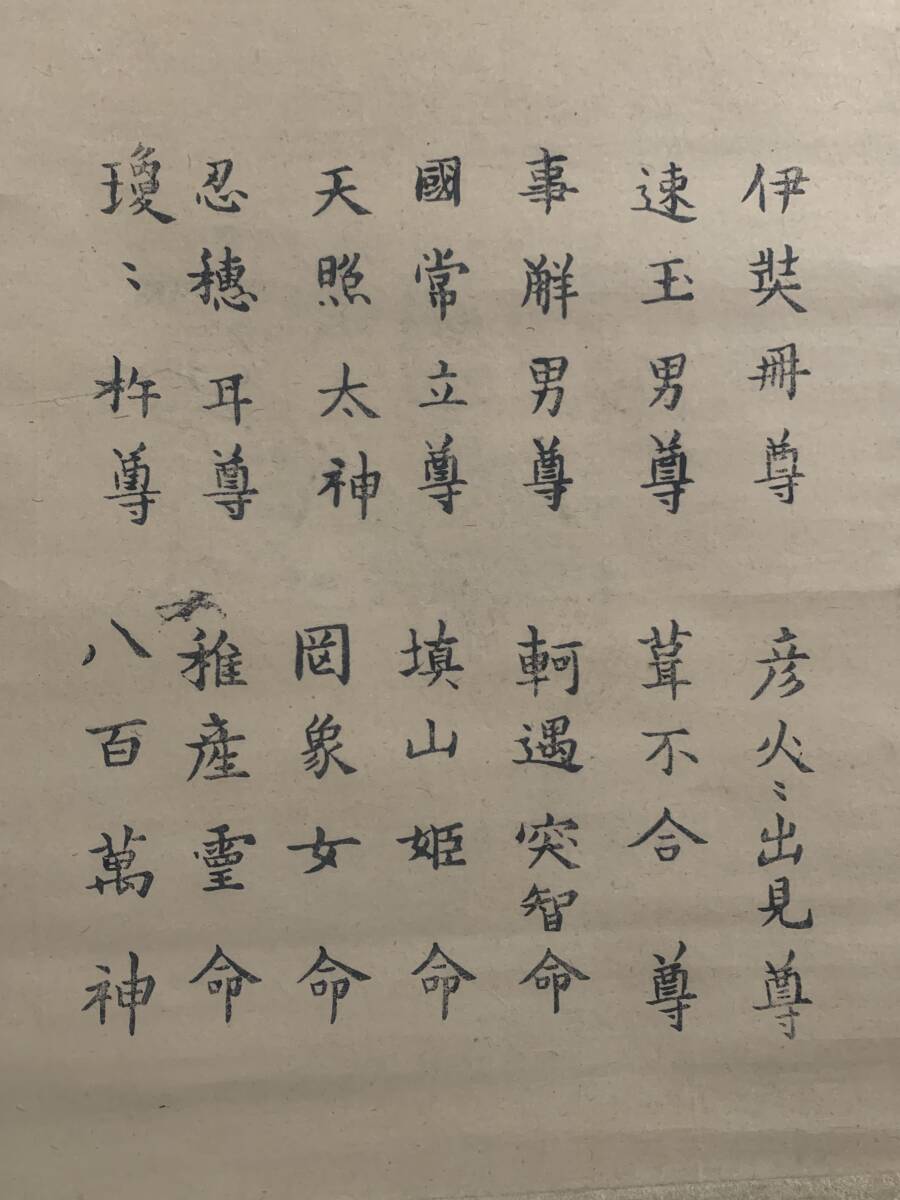 伊弉冊尊
速玉男尊
事解男尊
國常立尊
天照太神
忍穗耳尊
瓊〻杵尊
彦火〻出見尊
葺不合尊
軻遇突智命
填山姫命
罔象女命
稚産靈命
八百萬神